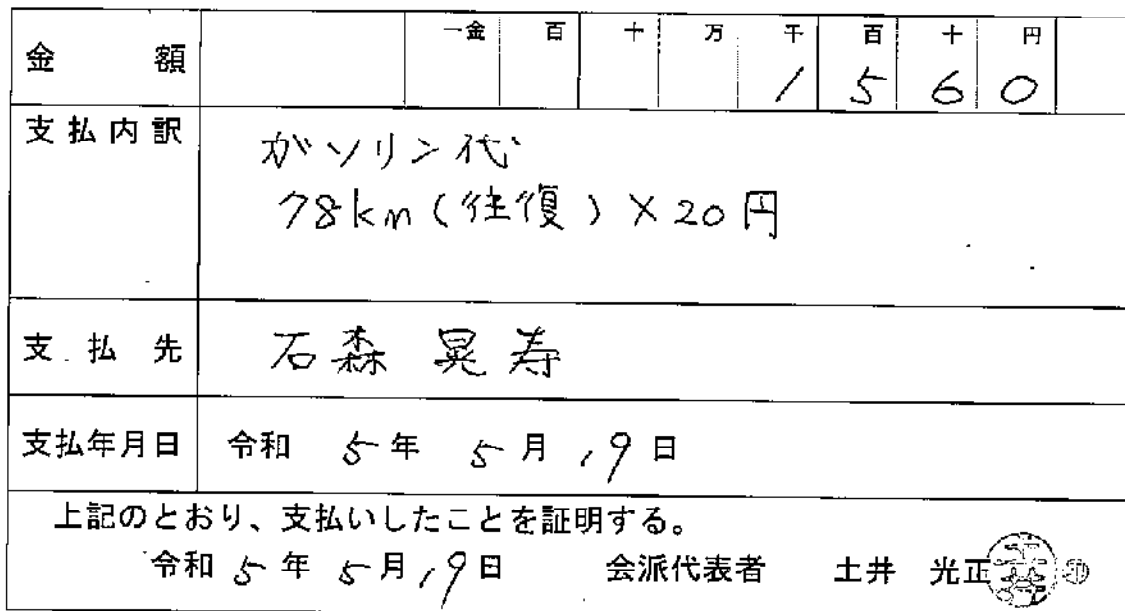 金額 一金 百 十 万 千 百 十 円
1 5 6 0
支払内訳 ガソリン代
78km(往復)×20円
支払先 石森 晃寿
支払年月日 令和 5年 5月 19日
上記のとおり、支払いしたことを証明する。
令和 5年 5月 19日 会派代表者 土井 光正 ㊞